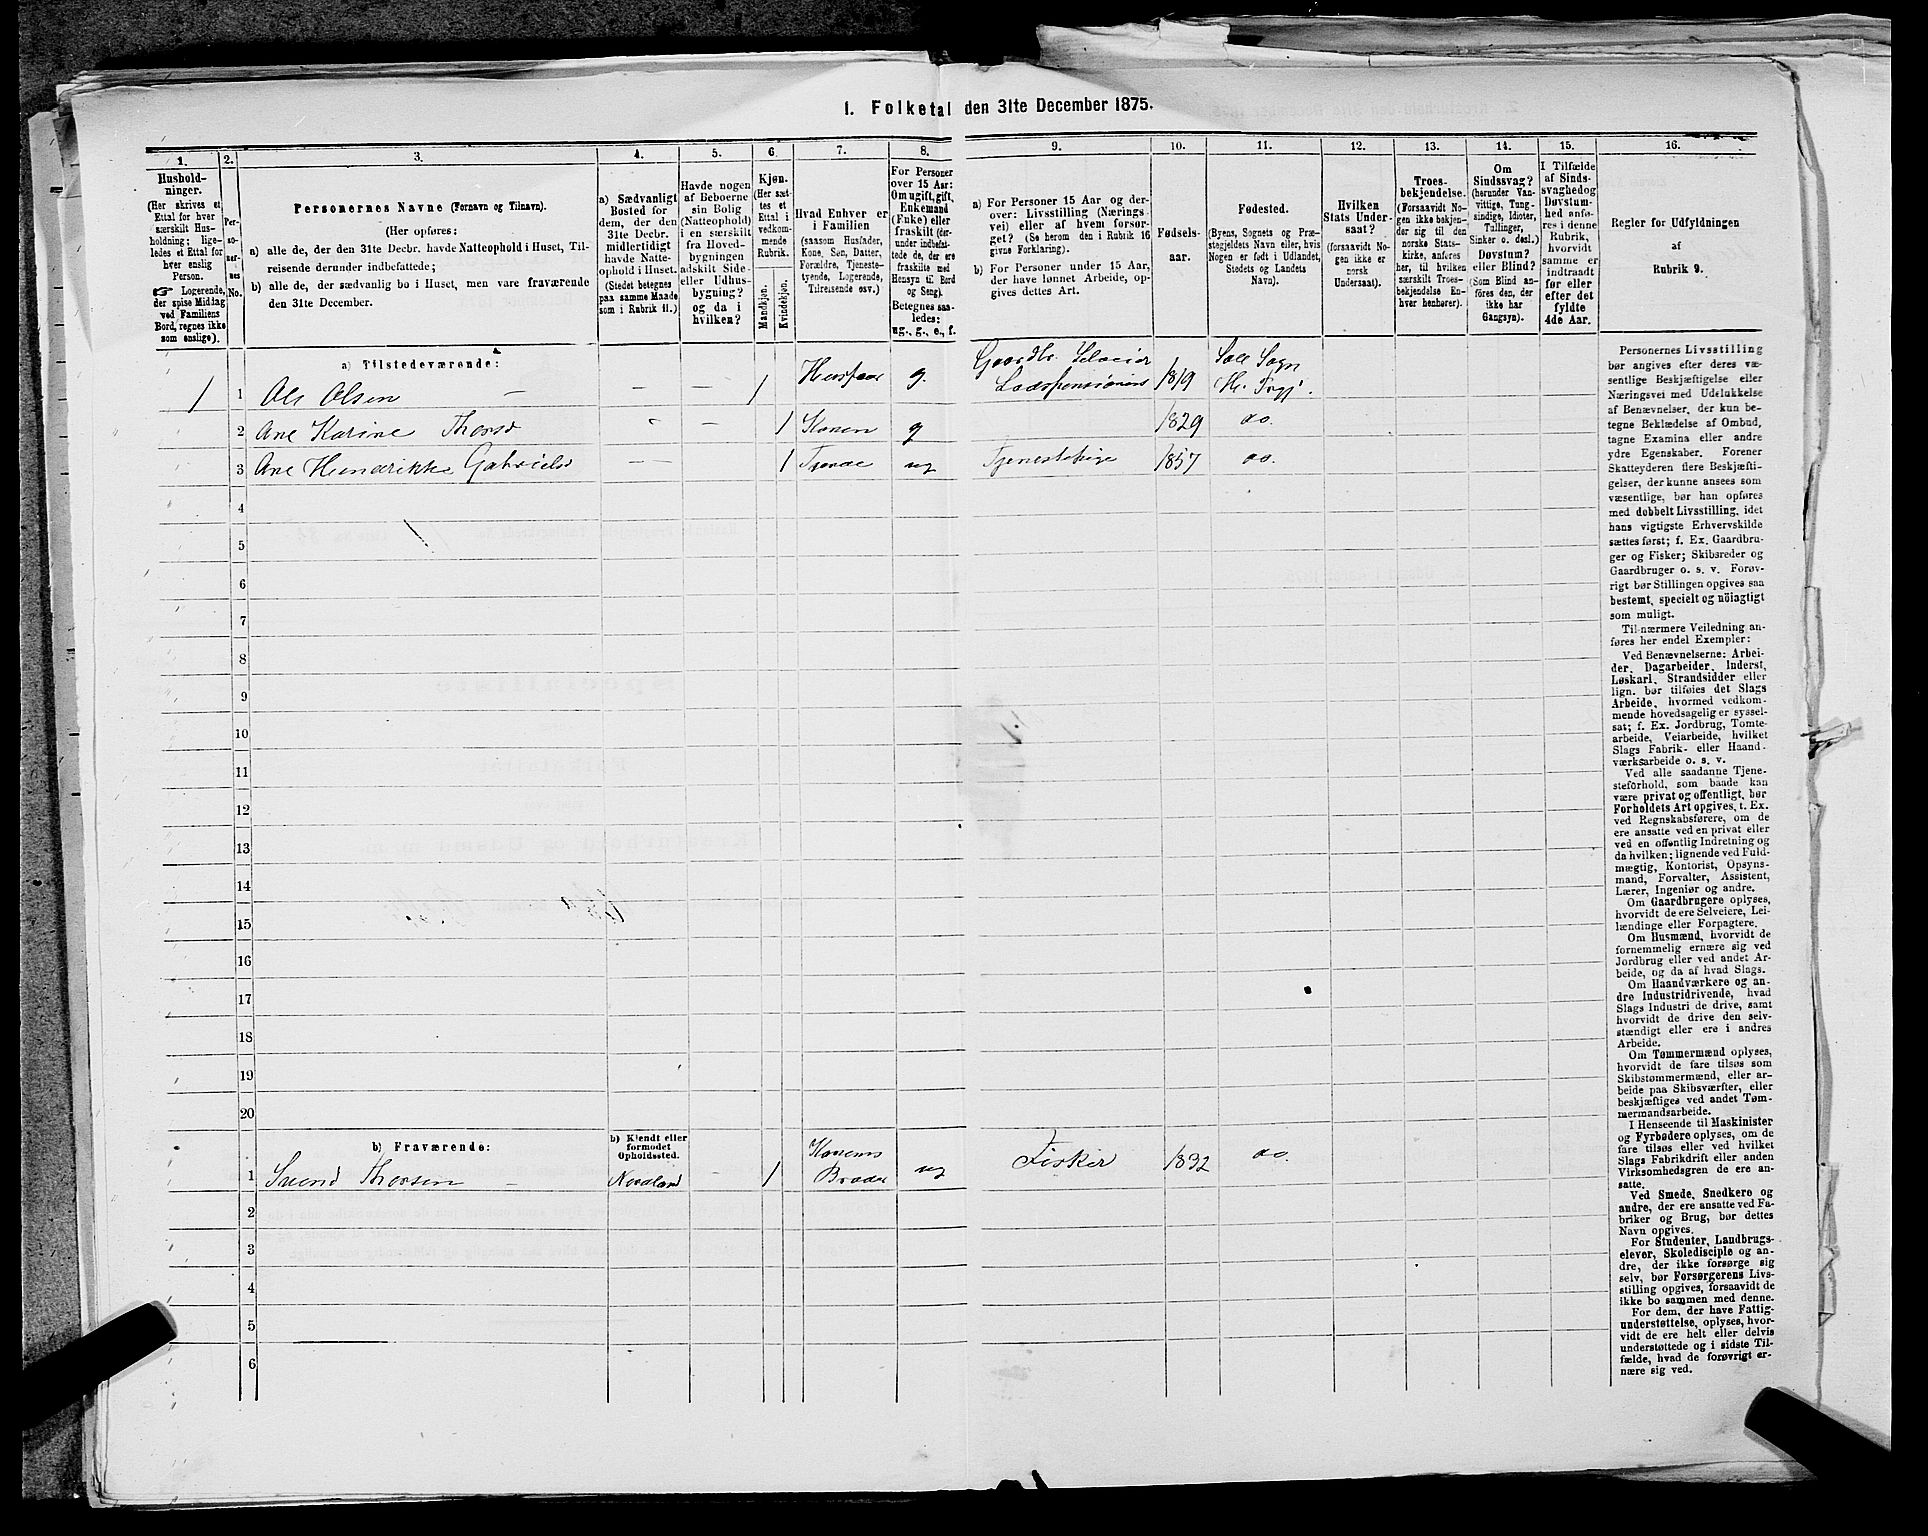 1. Folketal den 31te December 1875.
1. 2. 3. 4. 5. 6. 7. 8. 9. 10. 11. 12. 13. 14. 15. 16.
Hushold-
ninger.
(Her skrives et
Ettal for hver
særskilt Hus-
holdning; lige-
ledes et Ettal for
hver enslig
Person.
☞ Logerende,
der spise Middag
ved Familiens
Bord, regnes ikke
som enslige).
Per-
so-
ner-
nes
No.
Personernes Navne (Fornavn og Tilnavn).
(Her opføres:
a) alle de, der den 31te Decbr. havde Natteophold i Huset, Til-
reisende derunder indbefattede;
b) alle de, der sædvanlig bo i Huset, men vare fraværende
den 31te December.
a) Sædvanligt
Bosted for
dem, der den
31te Decbr.
midlertidigt
havde Natte-
ophold i Huset.
(Stedet betegnes
paa samme Maade
som i Rubrik 11.)
Havde nogen
af Beboerne
sin Bolig
(Natteophold)
i en særskilt
fra Hoved-
bygningen
adskilt Side-
eller Udhus-
bygning?
og da i
hvilken?
Kjøn.
(Her sæt-
tes et
Ettal i
vedkom-
mende
Rubrik.
Mandkjøn.
Kvindekjøn.
Hvad Enhver er
i Familien
(saasom Husfader,
Kone, Søn, Datter,
Forældre, Tjeneste-
tyende, Logerende,
Tilreisende osv.)
For Personer
over 15 Aar:
Om ugift, gift,
Enkemand
(Enke) eller
fraskilt (der-
under indbefat-
tede de, der ere
fraskilte med
Hensyn til Bord
og Seng).
Betegnes saa-
ledes:
ug., g., e., f.
a) For Personer 15 Aar og der-
over: Livsstilling (Nærings-
vei) eller af hvem forsør-
get? (Se herom den i Rubrik 16
givne Forklaring).
b) For Personer under 15 Aar,
der have lønnet Arbeide, op-
gives dettes Art.
Fødsels-
aar.
Fødested.
(Byens, Sognets og Præ-
stegjeldets Navn eller, hvis
Nogen er født i Udlandet,
Stedets og Landets
Navn).
Hvilken
Stats Under-
saat?
(forsaavidt No-
gen ikke er
norsk
Undersaat).
Troes-
bekjendelse.
(Forsaavidt No-
gen ikke bekjen-
der sig til den
norske Stats-
kirke, anføres
her, til hvilken
særskilt Troes-
bekjendelse En-
hver henhører).
Om
Sindssvag?
(herunder Van-
vittige, Tung-
sindige, Idioter,
Tullinger,
Sinker o. desl.)
Døvstum?
eller Blind?
(Som Blind an-
føres den, der
ikke har
Gangsyn).
I Tilfælde
af Sinds-
svaghed og
Døvstum-
hed anfø-
res i denne
Rubrik,
hvorvidt
samme er
indtraadt
før eller
efter det
fyldte
4de Aar.
Regler for Udfyldningen
af
Rubrik 9.
a) Tilstedeværende:
1 1 Ole Olsen — — — 1 Husfaar g. Gaardbr. Selveier Lodspensionens 1819 Sogn
2 Ane Karine Thorsd " — 1 Konen g 1829 do.
3 Ane Hendrikke Gabrielsd — — 1 Tjende ug Tjenestepige 1857 do.
4
5
6
7
8
9
10
11
12
13
14
15
16
17
18
19
20
b) Fraværende:
b) Kjendt eller
formodet
Opholdssted.
1 Svend Thorsen — Nordland — 1 Konens Broder ug Fisker 1832 do.
2
3
4
5
6
Personernes Livsstilling
bør angives efter deres væ-
sentlige Beskjæftigelse eller
Næringsvei med Udelukkelse
af Benævnelser, der kun be-
tegne Beklædelse af Ombud,
tagne Examina eller andre
ydre Egenskaber. Forener
Skatteyderen flere Beskjæfti-
gelser, der kunne ansees som
væsentlige, bør han opføres
med dobbelt Livsstilling, idet
hans vigtigste Erhvervskilde
sættes først; f. Ex. Gaardbru-
ger og Fisker; Skibsreder og
Gaardbruger o. s. v. Forøv-
rigt bør Stillingen opgives saa
bestemt, specielt og nöiagtigt
som muligt.
Til nærmere Veiledning an-
føres her endel Exempler:
Ved Benævnelserne: Arbei-
der, Dagarbeider, Inderst,
Løskarl, Strandsidder eller
lign. bør tilføies det Slags
Arbeide, hvormed vedkom-
mende hovedsagelig er syssel-
sat; f. Ex. Jordbrug, Tomte-
arbeide, Veiarbeide, hvilket
Slags Fabrik- eller Haand-
værksarbeide o. s. v.
Ved alle saadanne Tjene-
steforhold, som baade kan
være privat og offentligt, bør
Forholdets Art opgives, t. Ex.
ved Regnskabsførere, om de
ere ansatte ved en privat eller
ved en offentlig Indretning og
da hvilken; lignende ved Fuld-
mægtig, Kontorist, Opsyns-
mand, Forvalter, Assistent,
Lærer, Ingeniør og andre.
Om Gaardbrugere oplyses,
hvorvidt de ere Selveiere, Lei-
lændinge eller Forpagtere.
Om Husmænd, hvorvidt de
fornemmelig ernære sig ved
Jordbrug eller ved andet Ar-
beide, og da af hvad Slags.
Om Haandværkere og an-
dre Industridrivende, hvad
Slags Industri de drive, samt
hvorvidt de drive den selv-
stændigt eller ere i andres
Arbeide.
Om Tømmermænd oplyses,
hvorvidt de fare tilsøs som
Skibstømmermænd, eller ar-
beide paa Skibsværfter, eller
beskjæftiges ved andet Tøm-
mermandsarbeide.
I Henseende til Maskinister
og Fyrbødere oplyses, om de
fare tilsøs eller ved hvilket
Slags Fabrikdrift eller anden
Virksomhedsgren de ere an-
satte.
Ved Smede, Snedkere og
andre, der ere ansatte ved Fa-
briker og Brug, bør dettes
Navn opgives.
For Studenter, Landbrugs-
elever, Skoledisciple og an-
dre, der ikke forsørge sig
selv, bør Forsørgerens Livs-
stilling opgives, forsaavidt de
ikke bo sammen med denne.
For dem, der have Fattig-
understøttelse, oplyses, hvor-
vidt de ere helt eller delvis
understøttede og i sidste Til-
fælde, hvad de forøvrigt er-
nære sig ved.